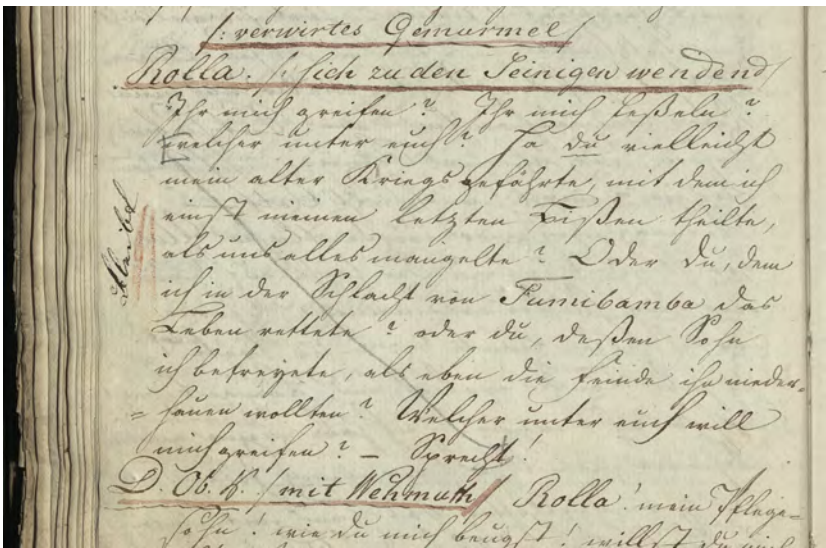 /: verwirtes Gemurmel /
Rolla. /: sich zu den Seinigen wendend /
Ihr mich greifen? Ihr mich feßeln?
welcher unter euch? Ha du vielleicht
mein alter Kriegsgefährte, mit dem ich
einst meinen letzten Bißen theilte,
als uns alles mangelte? Oder du, dem
ich in der Schlacht von Tumibamba das
Leben rettete? oder du, deßen Sohn
ich befreyete, als eben die Feinde ihn nieder-
= hauen wollten? Welcher unter euch will
mich greifen? – Sprecht!
D. Ob. K. /: mit Wehmuth / Rolla! mein Pflege-
sohn! wie du mich beugst! willst du
bleibt